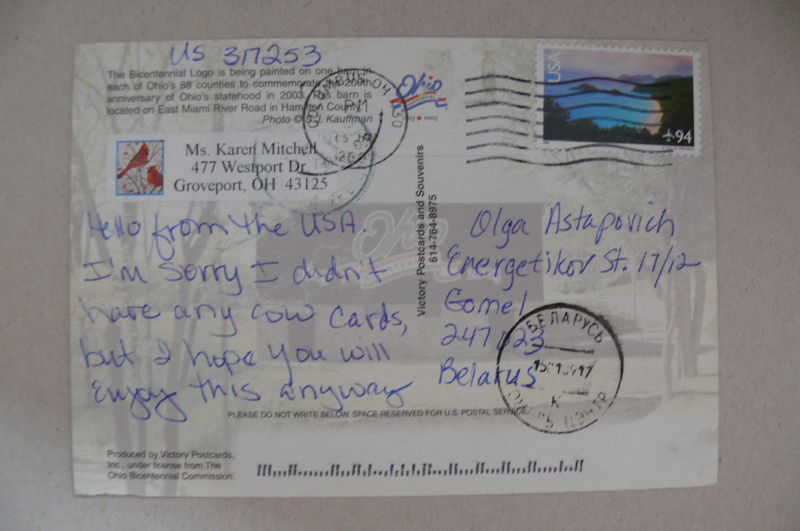 US 317253
The Bicentennial Logo is being painted on one barn in
each of Ohio's 88 counties to commemorate the 200th
anniversary of Ohio's statehood in 2003. This barn is
located on East Miami River Road in Hamilton County.
Photo © S.I. Kauffman
Ohio
USA
94
Ms. Karen Mitchell
477 Westport Dr.
Groveport, OH 43125
Hello from the USA.
I'm sorry I didn't
have any cow cards,
but I hope you will
Enjoy this anyway
Victory Postcards and Souvenirs
614-764-8975
Olga Astapovich
Energetikov St. 17/12
Gomel
247023
Belarus
БЕЛАРУСЬ
PLEASE DO NOT WRITE BELOW. SPACE RESERVED FOR U.S. POSTAL SERVICE.
Produced by Victory Postcards,
Inc., under license from The
Ohio Bicentennial Commission.